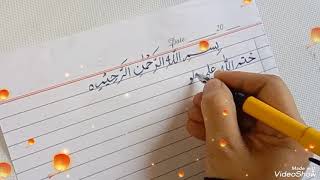 Date: 20
بِسْمِ اللهِ الرَّحْمٰنِ الرَّحِيْمِ ۝
ختم اللہ علی
Made with
VideoShow